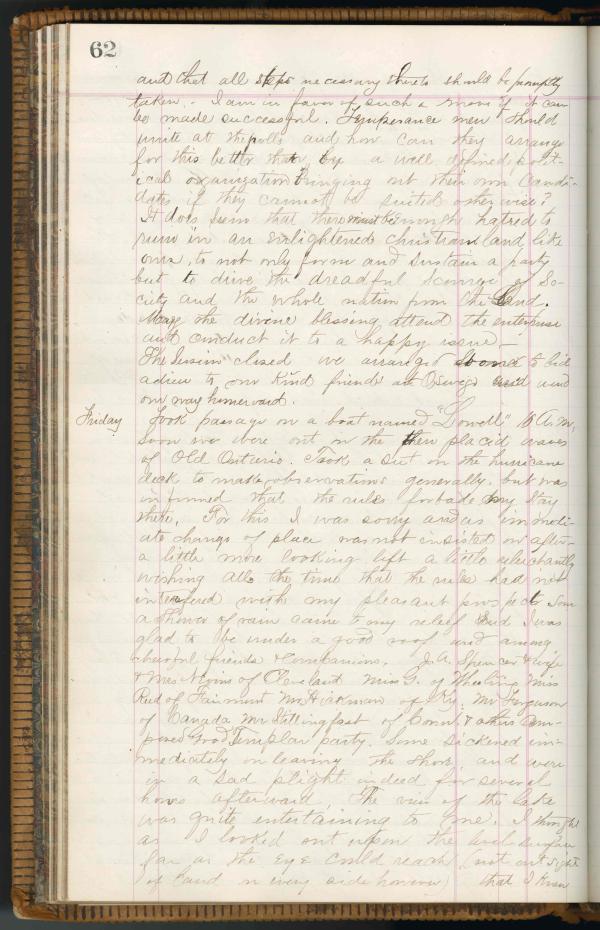 62
and that all steps necessary thereto should be promptly
taken. - I am in favor of such a move if it can
be made successful. Temperance men should
unite at the polls and how can they arrange
for this better than by a well defined polit-
ical organization bringing out their own candi-
dates if they cannot be suited otherwise?
It does seem that there must be enough hatred to
rum in an enlightened christian land like
ours, to not only form and sustain a party
but to drive the dreadful scourge of So-
ciety and the whole nation from the Land.
May the divine blessing attend the enterprise
and conduct it to a happy issue -
The Session closed we arranged to bid
adieu to our kind friends at Oswego and
on way homeward.
Friday Took passage on a boat named "Lowell" 10 A.M.
soon we were out on the then placid waves
of Old Ontario. Took a seat on the hurricane
deck to make observations generally, but was
informed that the rules forbade my stay
there. For this I was sorry and as immedi-
ate change of place was not insisted on after
a little more looking left a little reluctantly
wishing all the time that the rules had not
interfered with my pleasant prospects Soon
a shower of rain came to my relief and I was
glad to be under a good roof and among
cheerful friends & companions. J. A. Spencer & wife
& Mrs of Cleveland Miss G. of Wheeling Miss
Reed of Fairmont Mr Hickman of Ky. Mr Ferguson
of Canada Mr Stillingfast of Conn. & others com-
posed Good Templar party. Some sickened im-
mediately on leaving the shore, and were
in a sad plight indeed for several
hours afterward. The view of the lake
was quite entertaining to me. I thought
as I looked out upon the level surface
far as the eye could reach (not out sight
of land on every side however) that I knew